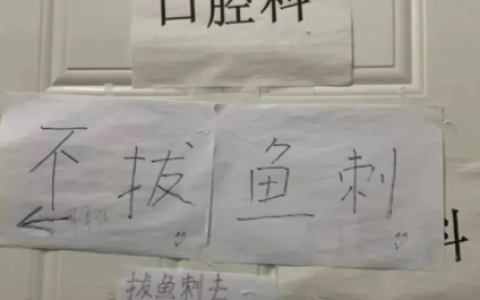 口腔科
不拔鱼刺
科
拔鱼刺去